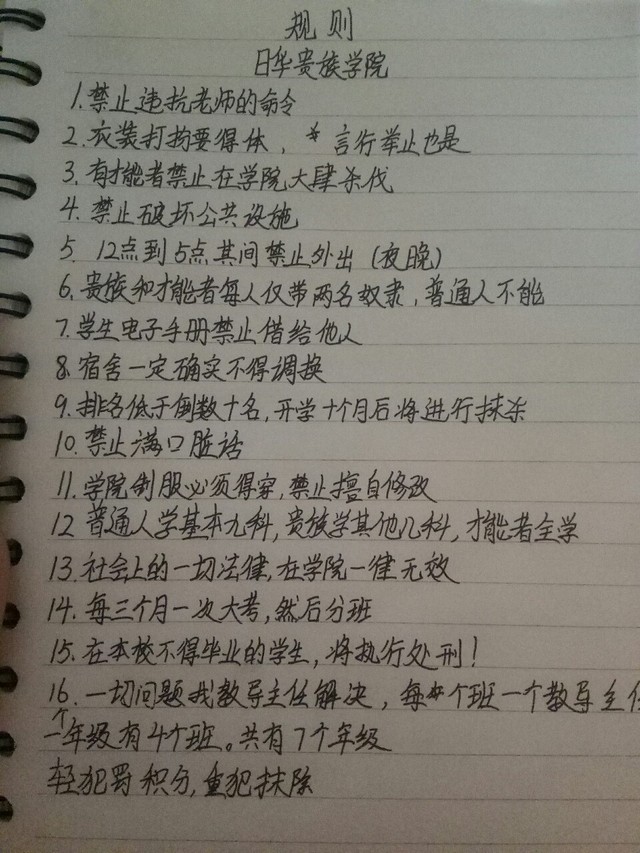 规则
日华贵族学院
1.禁止违抗老师的命令
2.衣装打扮要得体、*言行举止也是
3.有才能者禁止在学院大肆杀伐
4.禁止破坏公共设施
5.12点到5点其间禁止外出(夜晚)
6.贵族和才能者每人仅带两名奴隶,普通人不能
7.学生电子手册禁止借给他人
8.宿舍一定确实不得调换
9.排名低于倒数十名,开学十个月后将进行抹杀
10.禁止满口脏话
11.学院制服必须得穿,禁止擅自修改
12 普通人学基本九科,贵族学其他几科,才能者全学
13.社会上的一切法律,在学院一律无效
14.每三个月一次大考,然后分班
15.在本校不得毕业的学生,将执行处刑!
16.一切问题找教导主任解决,每个班一个教导主任
一个年级有4个班。共有7个年级
轻犯罚积分,重犯抹除